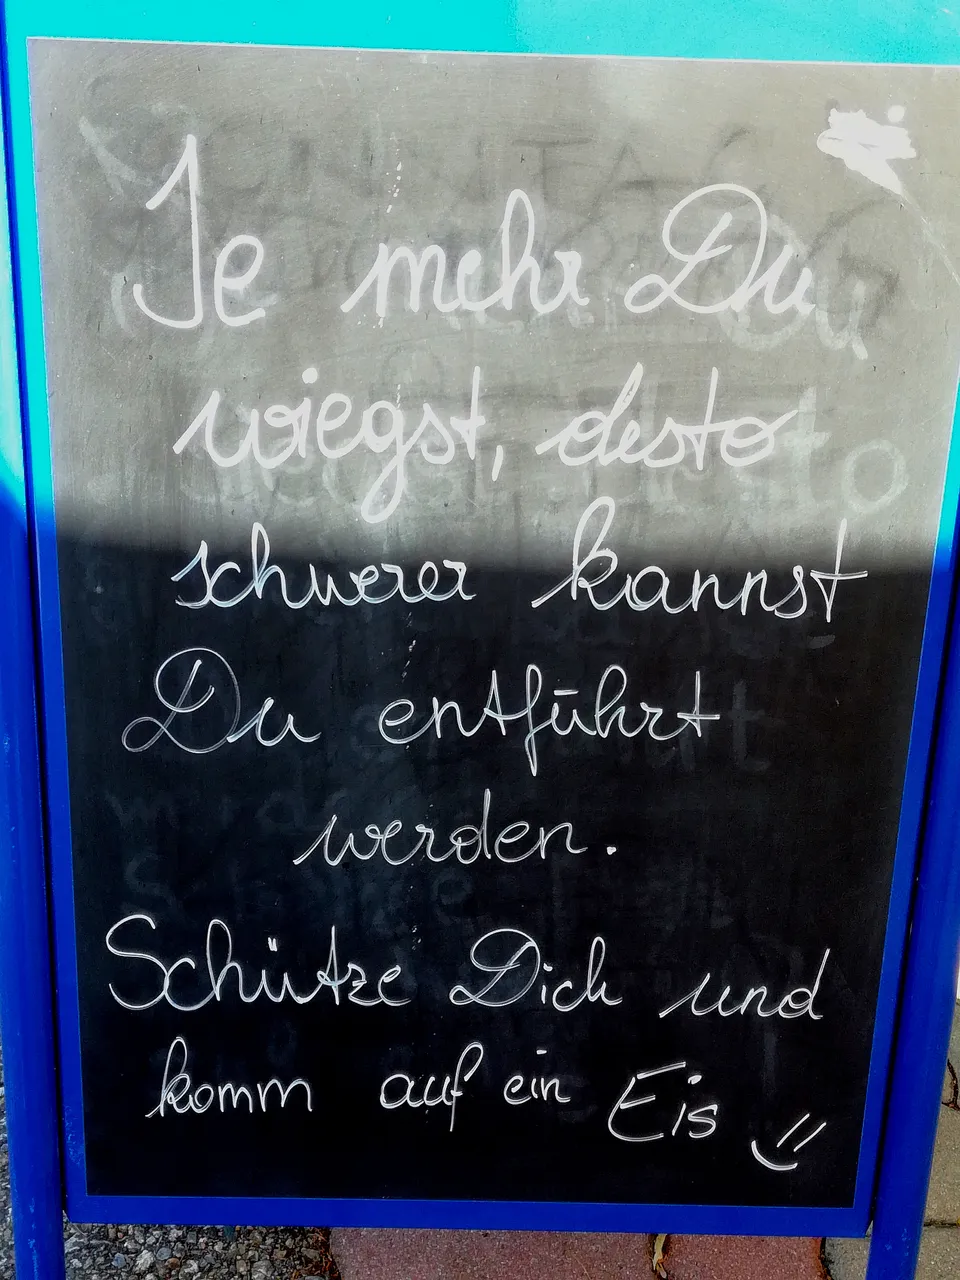 Je mehr Du
wiegst, desto
schwerer kannst
Du entführt
werden.
Schütze Dich und
komm auf ein Eis